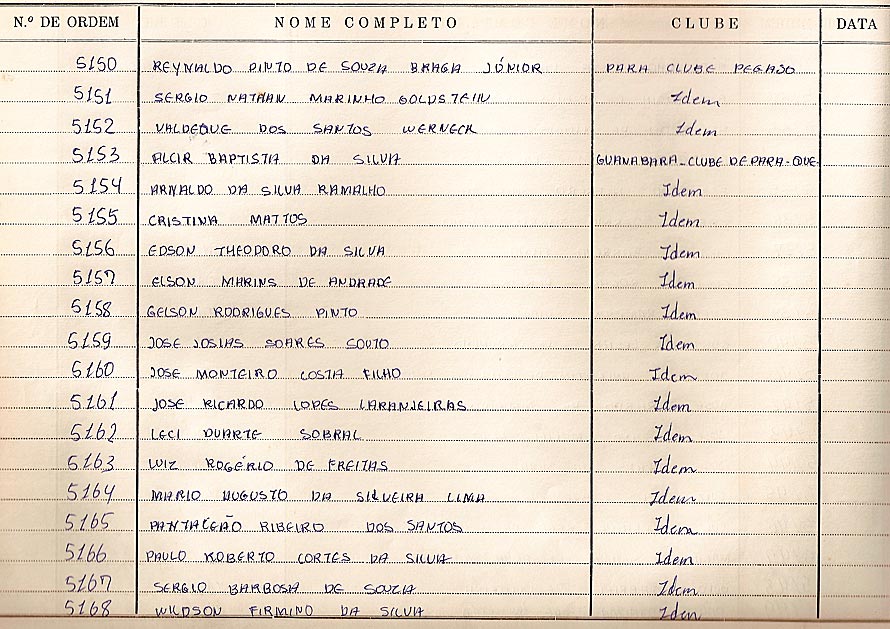 N.º DE ORDEM NOME COMPLETO CLUBE DATA
5150 REYNALDO PINTO DE SOUZA BRAGA JÚNIOR PARA CLUBE PEGASO
5151 SERGIO NATHAN MARINHO GOLDSTEIN Idem
5152 VALDEQUE DOS SANTOS WERNECK Idem
5153 ALCIR BAPTISTA DA SILVA GUANABARA-CLUBE DE PARA-QUE-
5154 ARNALDO DA SILVA RAMALHO Idem
5155 CRISTINA MATTOS Idem
5156 EDSON THEODORO DA SILVA Idem
5157 ELSON MARINS DE ANDRADE Idem
5158 GELSON RODRIGUES PINTO Idem
5159 JOSE JOSIAS SOARES SOUTO Idem
5160 JOSE MONTEIRO COSTA FILHO Idem
5161 JOSE RICARDO LOPES LARANJEIRAS Idem
5162 LECI DUARTE SOBRAL Idem
5163 LUIZ ROGÉRIO DE FREITAS Idem
5164 MARIO AUGUSTO DA SILVEIRA LIMA Idem
5165 PANTALEÃO RIBEIRO DOS SANTOS Idem
5166 PAULO ROBERTO CORTES DA SILVA Idem
5167 SERGIO BARBOSA DE SOUZA Idem
5168 WILDSON FIRMINO DA SILVA Idem